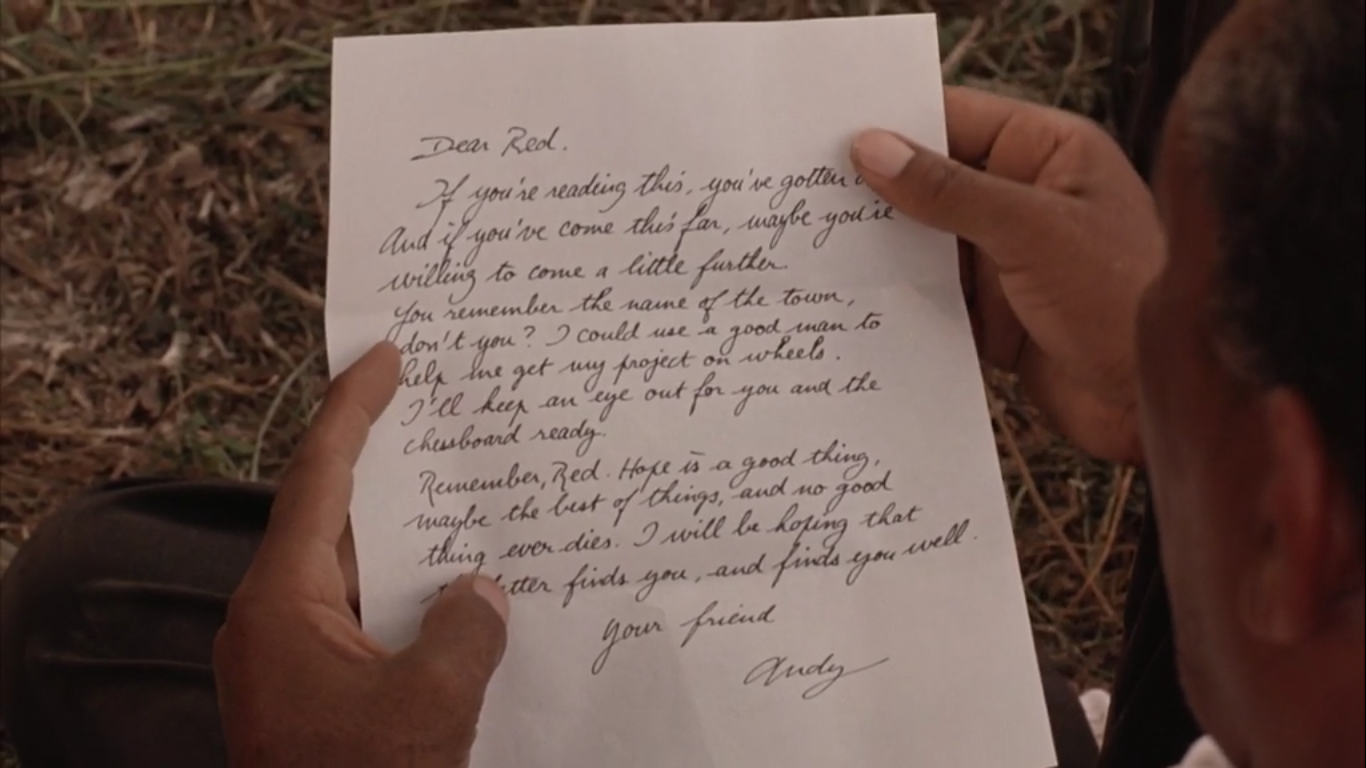 Dear Red.
If you're reading this, you've gotten
And if you've come this far, maybe you're
willing to come a little further.
You remember the name of the town,
don't you? I could use a good man to
help me get my project on wheels.
I'll keep an eye out for you and the
chessboard ready.
Remember, Red. Hope is a good thing,
maybe the best of things, and no good
thing ever dies. I will be hoping that
finds you, and finds you well.
Your friend
Andy